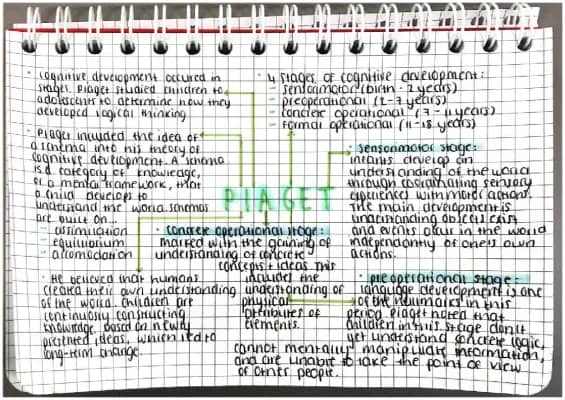 · cognitive development occured in
stages. Piaget studied children to
adolescents to determine how they
developed logical thinking
· 4 stages of cognitive development:
- sensorimotor (birth - 2 years)
- preoperational (2-7 years)
- concrete operational (7-11 years)
- formal operational (11-18 years)
· Piaget included the idea of
a schema into his theory of
cognitive development. A schema
is a category of knowledge,
or a mental framework, that
a child develops to
understand the world. schemas
are built on...
- assimilation
- equilibrium
- accomodation
PIAGET
· sensorimotor stage:
infants develop an
understanding of the world
through coordinating sensory
experiences with motor actions.
The main development is
understanding objects exist
and events occur in the world
independantly of one's own
actions.
· concrete operational stage:
marked with the gaining of
understanding of concrete
concepts + ideas. This
includes the
understanding of
physical
attributes of
elements.
· He believed that humans
created their own understanding
of the world. Children are
continuosly constructing
knowledge based on newly
presented ideas, which led to
long-term change.
· preoperational stage:
language development is one
of the hallmarks in this
period. Piaget noted that
children in this stage don't
yet understand concrete logic,
cannot mentally manipulate information,
and are unable to take the point of view
of other people.